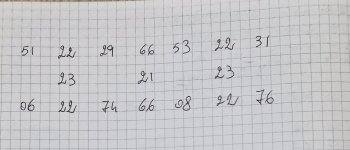 51 22 29 66 53 22 31
23 21 23
06 22 74 66 08 22 76